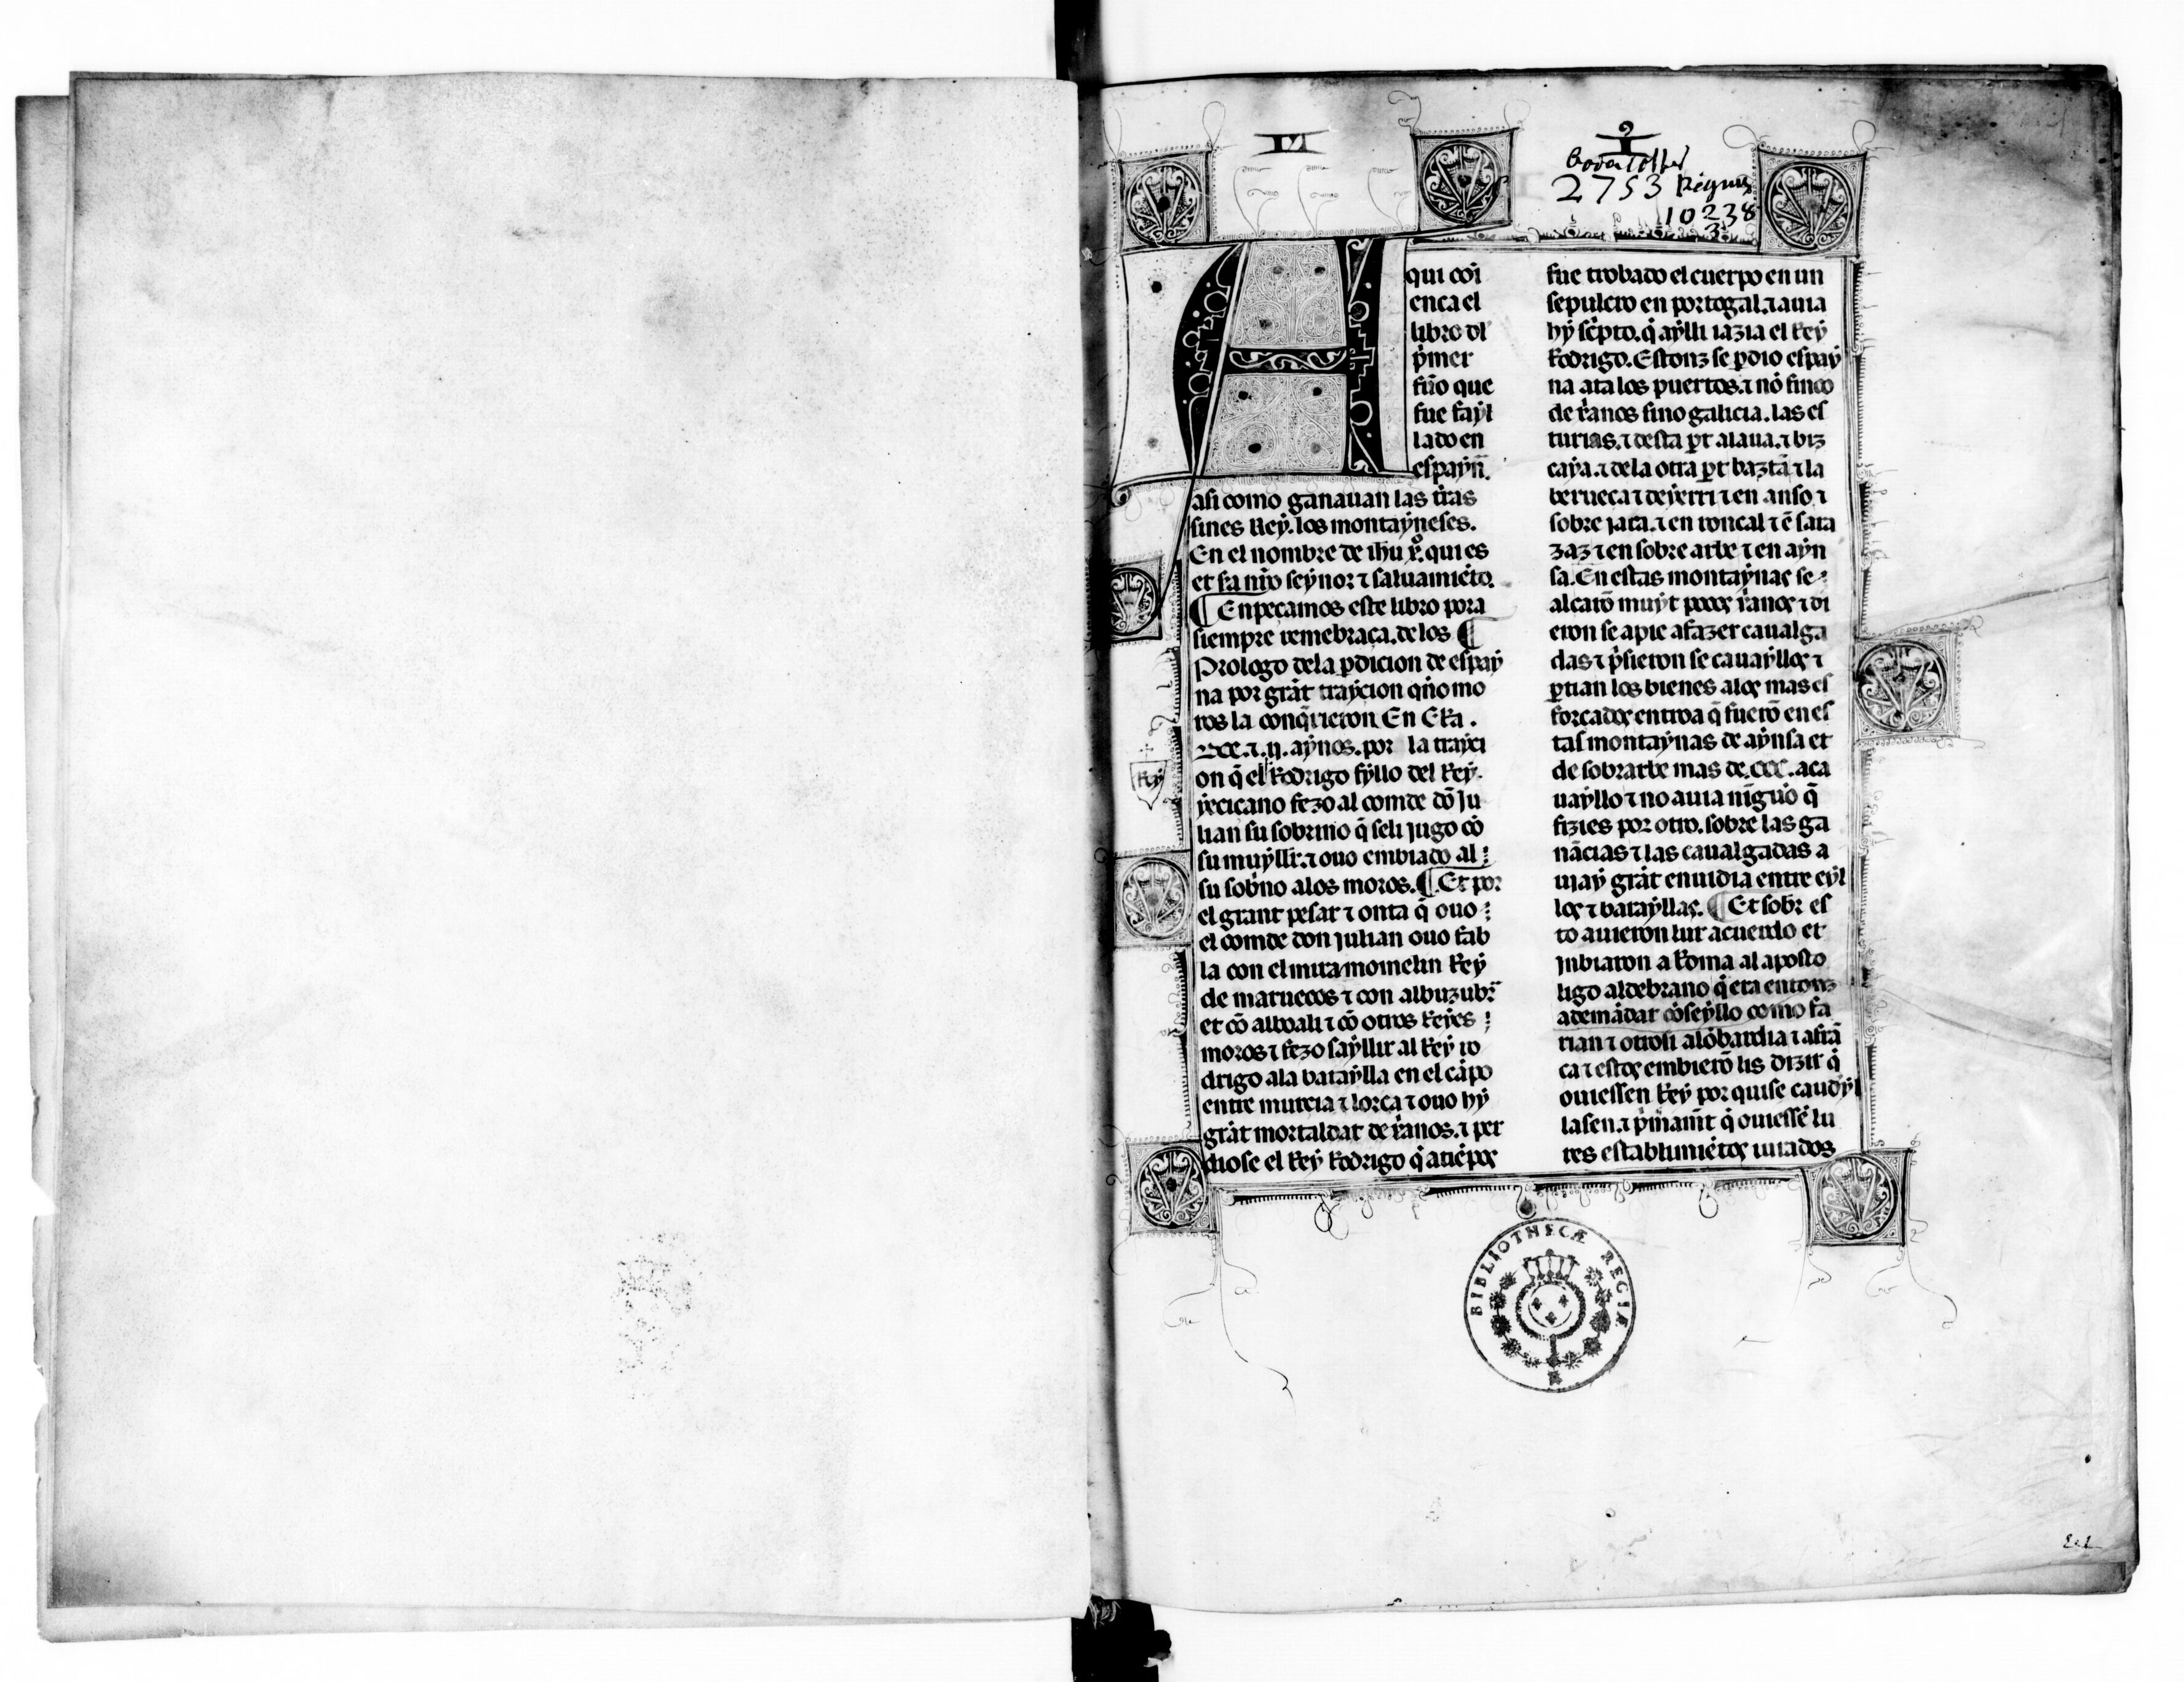 2753
10238
3
A
qui com̄
enca el
libro dl
p̃mer
fũo que
fue fayl
lado en
espayn̄.
asi como ganauan las tr̃as
sines Rey. los montayneses.
En el nombre de ihũ xº. qui es
et sa nr̃o seynor ⁊ saluamiẽto.
¶ Enpeçamos este libro pora
siempre remẽbraça. de los ¶
Prologo dela ꝑdicion de espay
na por grãt traycion qñ o mo
ros la conq̃rieron. En Era.
Dcc. ⁊. ij. aynos. por la trayci
on q̃ el Rodrigo fyllo del Rey.
yecicano fezo al comde dõ Ju
lian su sobrino q̃ seli jugo cõ
su muyllr. ⁊ ouo embiado al
su sobr̃no alos moros. ¶ Et por
el grant pesar ⁊ onta q̃ ouo
el comde don julian ouo fab
la con el miramomelin Rey
de maruecos ⁊ con albuzubr̃
et cõ alboali ⁊ cõ otros Reyes
moros ⁊ fezo sayllir al Rey ro
drigo ala bataylla en el cãpo
entre murcia ⁊ lorca ⁊ ouo hy
grãt mortaldat de xp̃anos. ⁊ per
diose el Rey Rodrigo q̃ a tiẽpos
Rey
fue trobado el cuerpo en un
sepulcro en portogal. ⁊ auia
hy scͥpto. q̃ aylli iazia el Rey
Rodrigo. Estonz se ꝑdio espay
na ata los puertos. ⁊ nõ finco
de xp̃anos sino galicia. las es
turias. ⁊ desta ꝑt alaua. ⁊ biz
caya. ⁊ dela otra ꝑt baztã ⁊ la
berueca ⁊ deyerri ⁊ en anso ⁊
sobre jaca. ⁊ en roncal ⁊ ẽ sara
zaz ⁊ en sobre arbe ⁊ en ayn
sa. En estas montaynas se
alcarõ muyt pocos xp̃anos ⁊ di
eron se a pie a fazer caualga
das ⁊ p̃sieron se cauayllos ⁊
ꝑtian los bienes alos mas es
forcados entroa q̃ fuerõ en es
tas montaynas de aynsa et
de sobrarbe mas de. ccc. a ca
uayllo ⁊ no auia nĩguo q̃
fizies por otro. sobre las ga
nãcias ⁊ las caualgadas a
uiay grãt enuidia entre eyl
los ⁊ batayllas. ¶ Et sobr es
to auieron lur acuerdo et
jnbiaron a Roma al aposto
ligo aldebrano q̃ era entonz
a demãdar cõseyllo como fa
rian ⁊ otrosi a lõbardia ⁊ a frã
ca ⁊ estos embierõ lis dizir q̃
ouiessen Rey por qui se caudyl
lasen. ⁊ p̃mam̃t q̃ ouiessẽ lu
res establimiẽtos iurados
BIBLIOTHECÆ REGIÆ